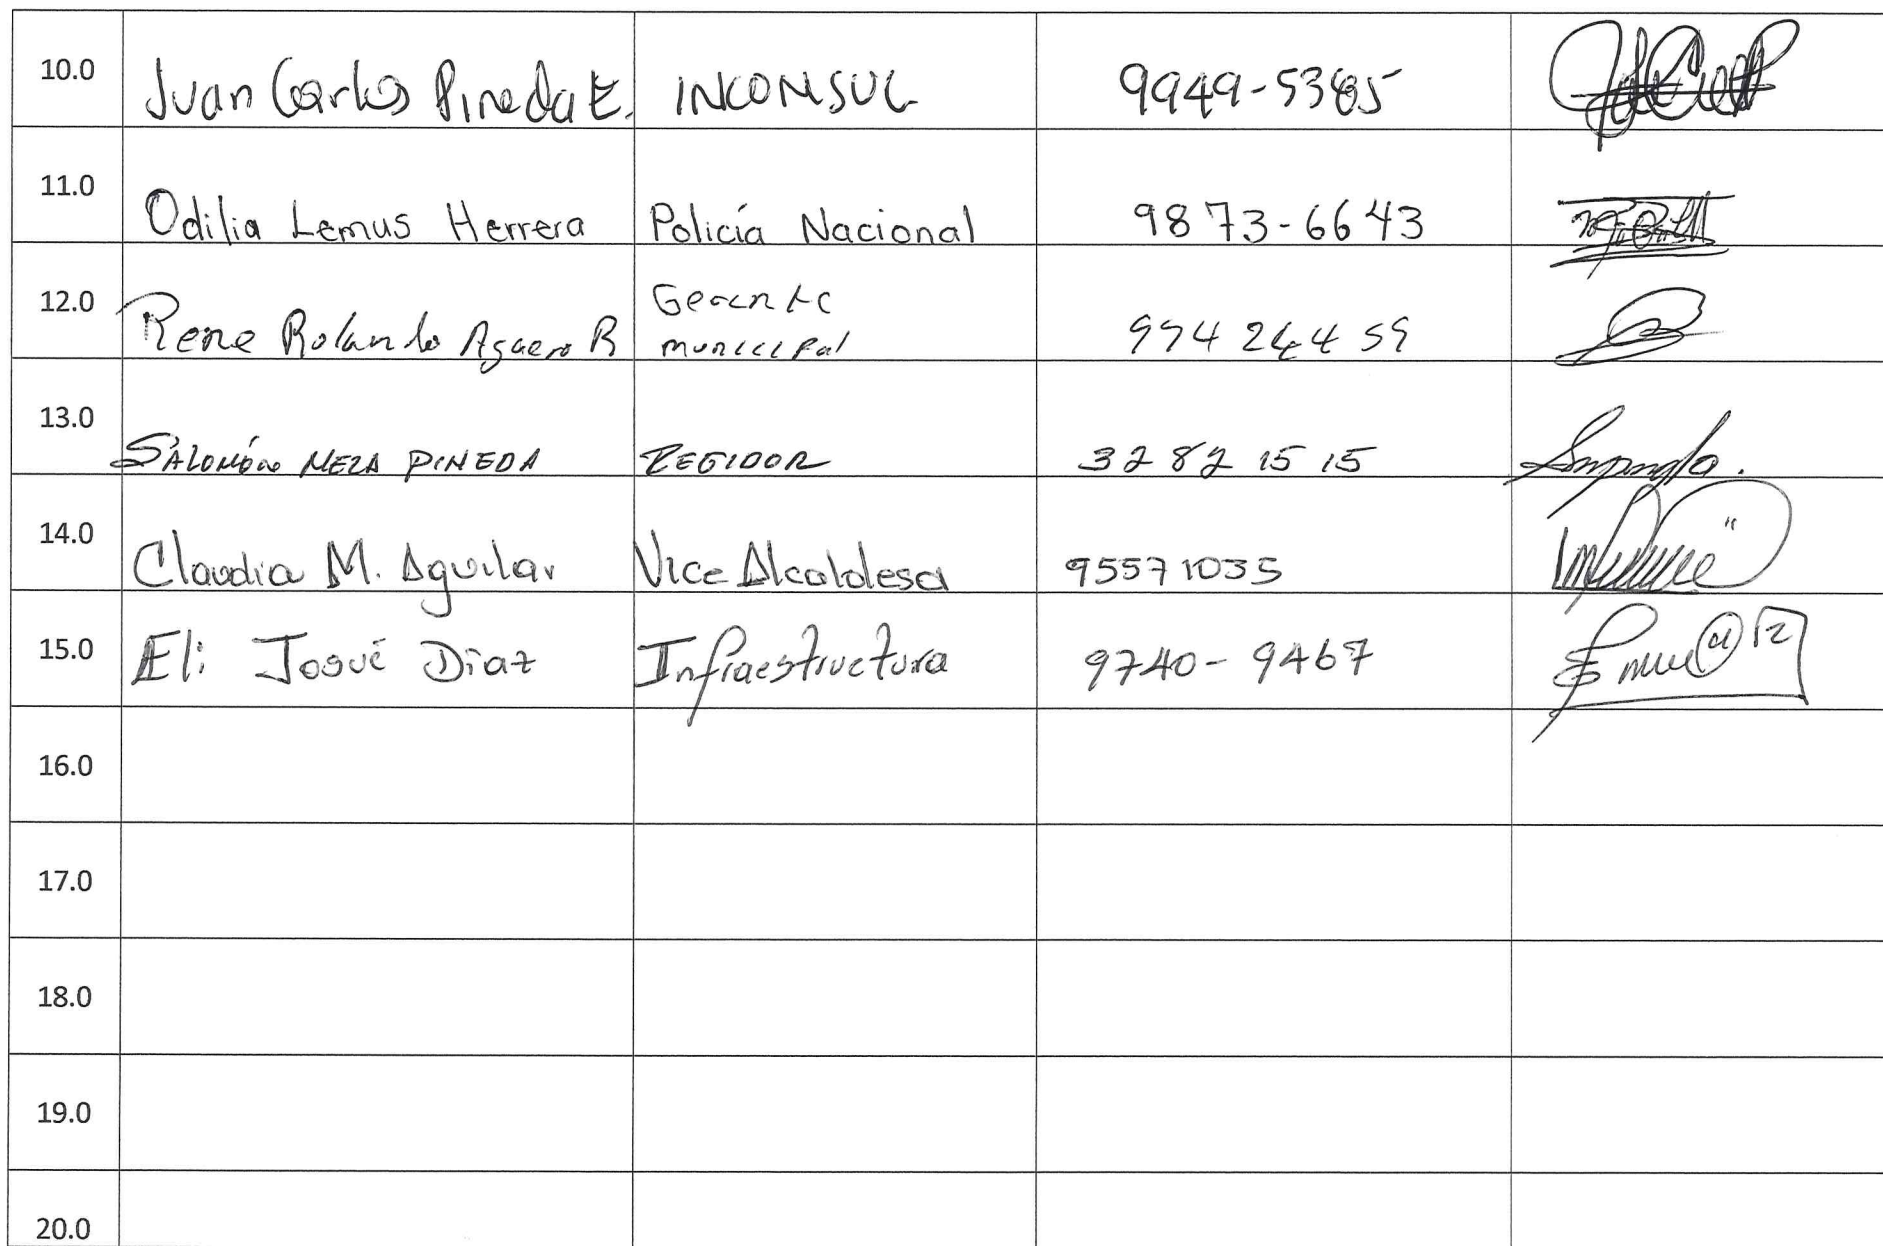 10.0 Juan Carlos Pineda E. INCONSUL 9949-5385
11.0 Odilia Lemus Herrera Policía Nacional 9873-6643
12.0 Rene Rolando Aguero R Gerente municipal 994 244 59
13.0 SALOMÓN MEZA PINEDA REGIDOR 32 82 15 15
14.0 Claudia M. Aguilar Vice Alcaldesa 95571035
15.0 Eli Josué Díaz Infraestructura 9740-9467
16.0
17.0
18.0
19.0
20.0